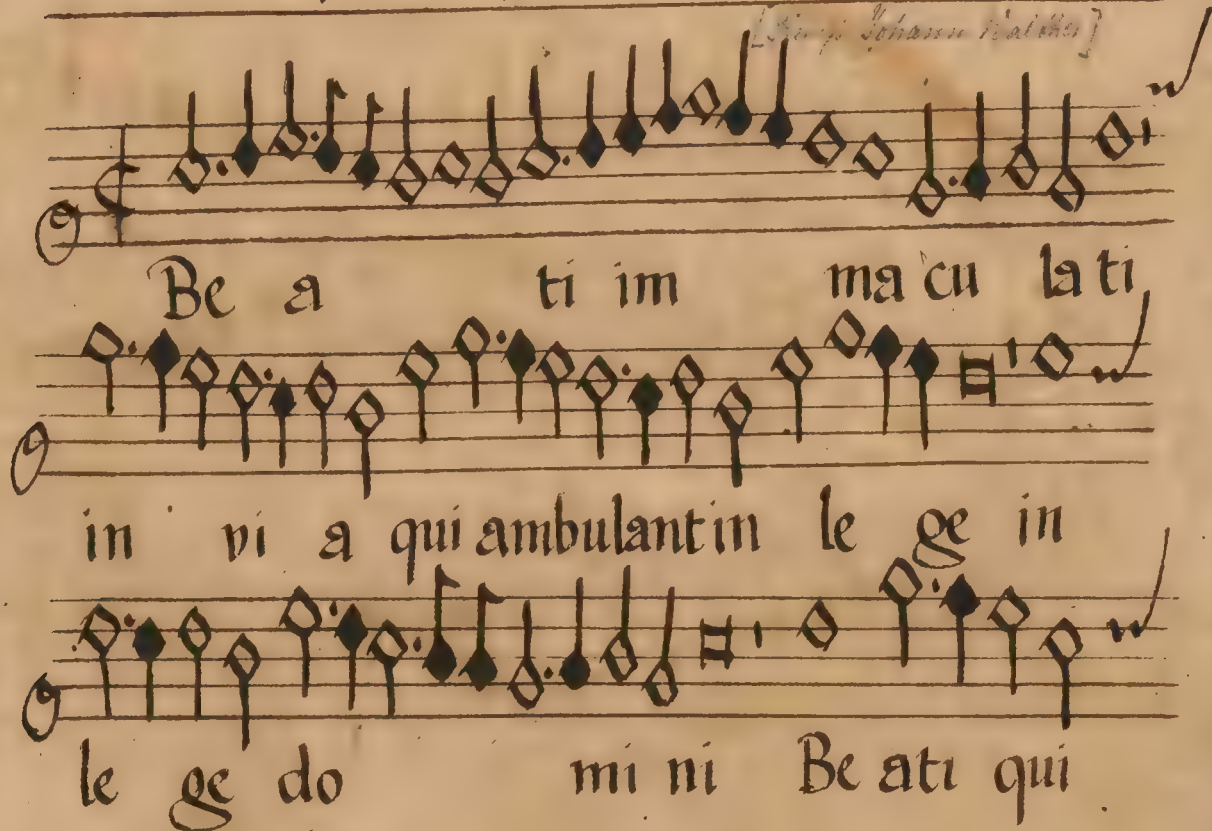 Johann Walther]
Be a ti im ma cu la ti
in vi a qui ambulant in le ge in
le ge do mi ni Be ati qui